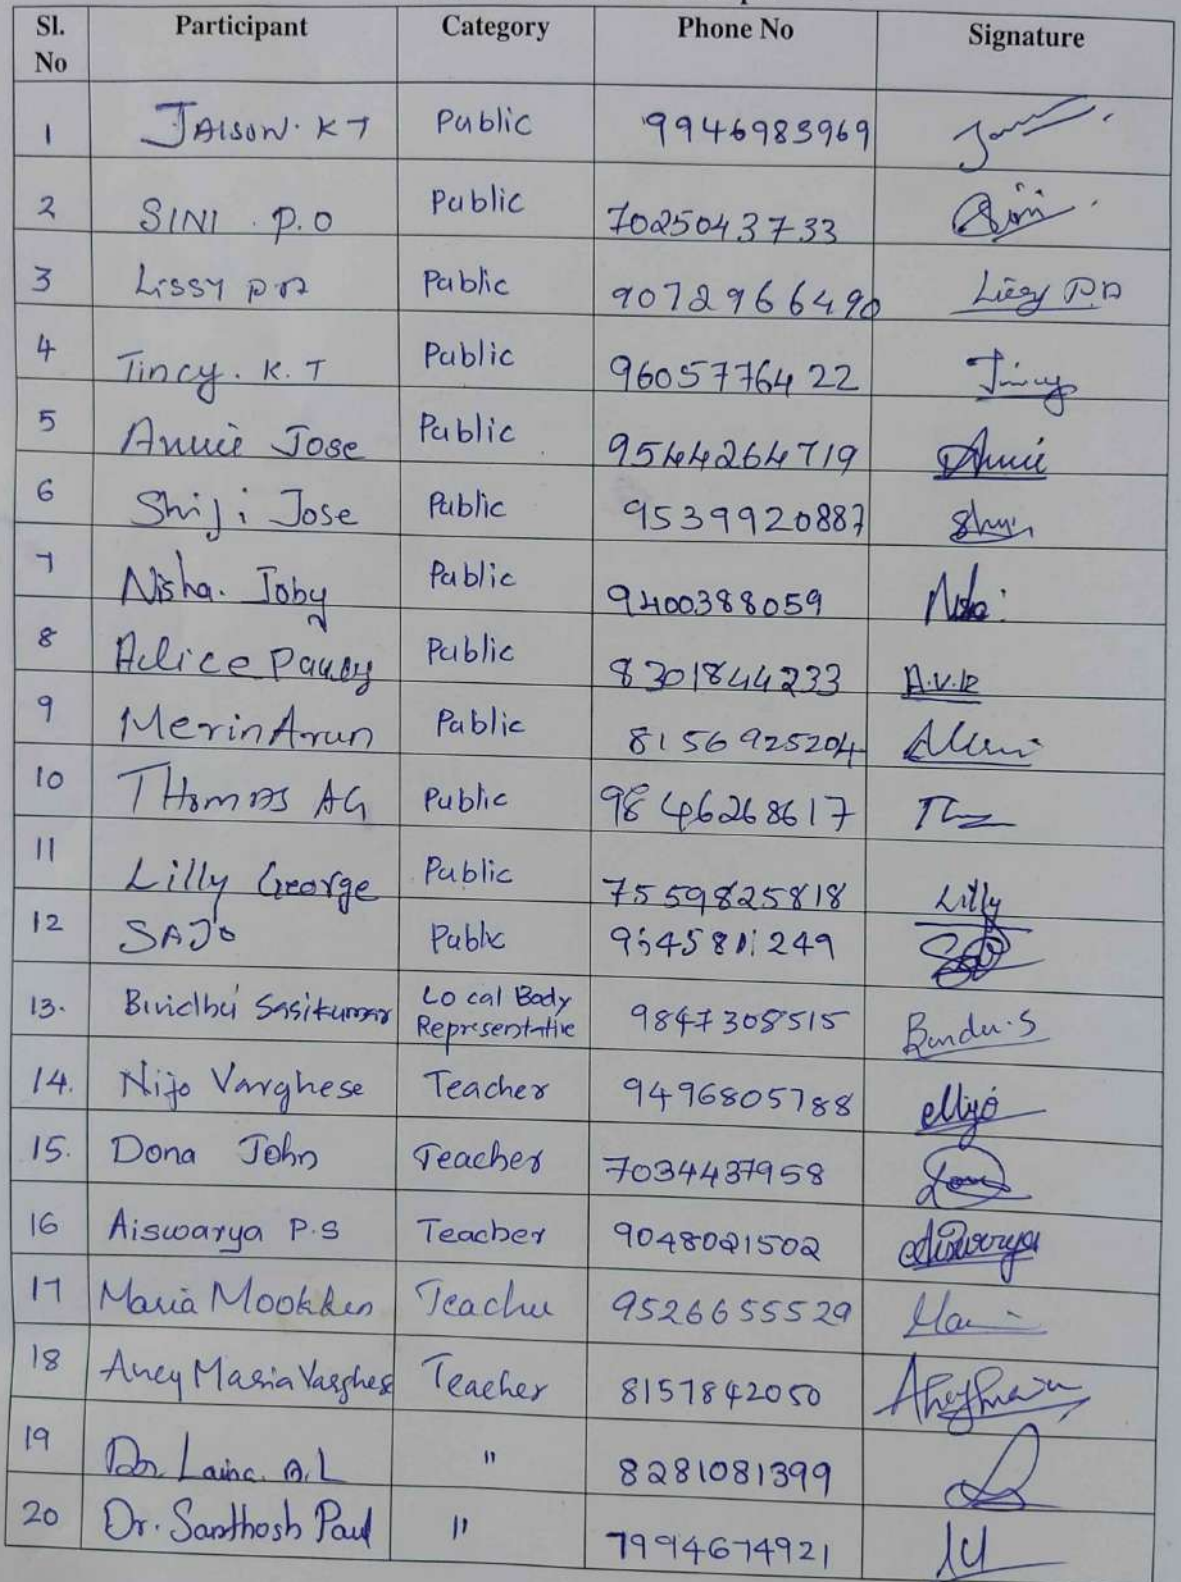 Sl. No Participant Category Phone No Signature
1 JAISON. KT Public 9946983969
2 SINI. P.O Public 7025043733 Sini
3 Lissy P.A Public 9072966490 Lissy P.A
4 Tincy. K.T Public 9605776422 Tincy
5 Annie Jose Public 9544264719 Annie
6 Shiji Jose Public 9539920887
7 Nisha. Joby Public 9400388059 Nisha
8 Alice Pauly Public 8301844233 A.V.R
9 Merin Arun Public 8156925204
10 THOMAS AG Public 9846268617
11 Lilly George Public 7559825818 Lilly
12 SAJO Public
13. Bindhu Sasikumar Local Body Representative 9847308515 Bindu.S
14. Nijo Varghese Teacher 9496805788 Nijo
15. Dona John Teacher 7034437958
16 Aiswarya P.S Teacher 9048021502 Aiswarya
17 Maria Mookken Teacher 9526655529
18 Ancy Maria Varghese Teacher 8157842050
19 Dr. Laina. A.L " 8281081399
20 Dr. Santhosh Paul " 7994674921